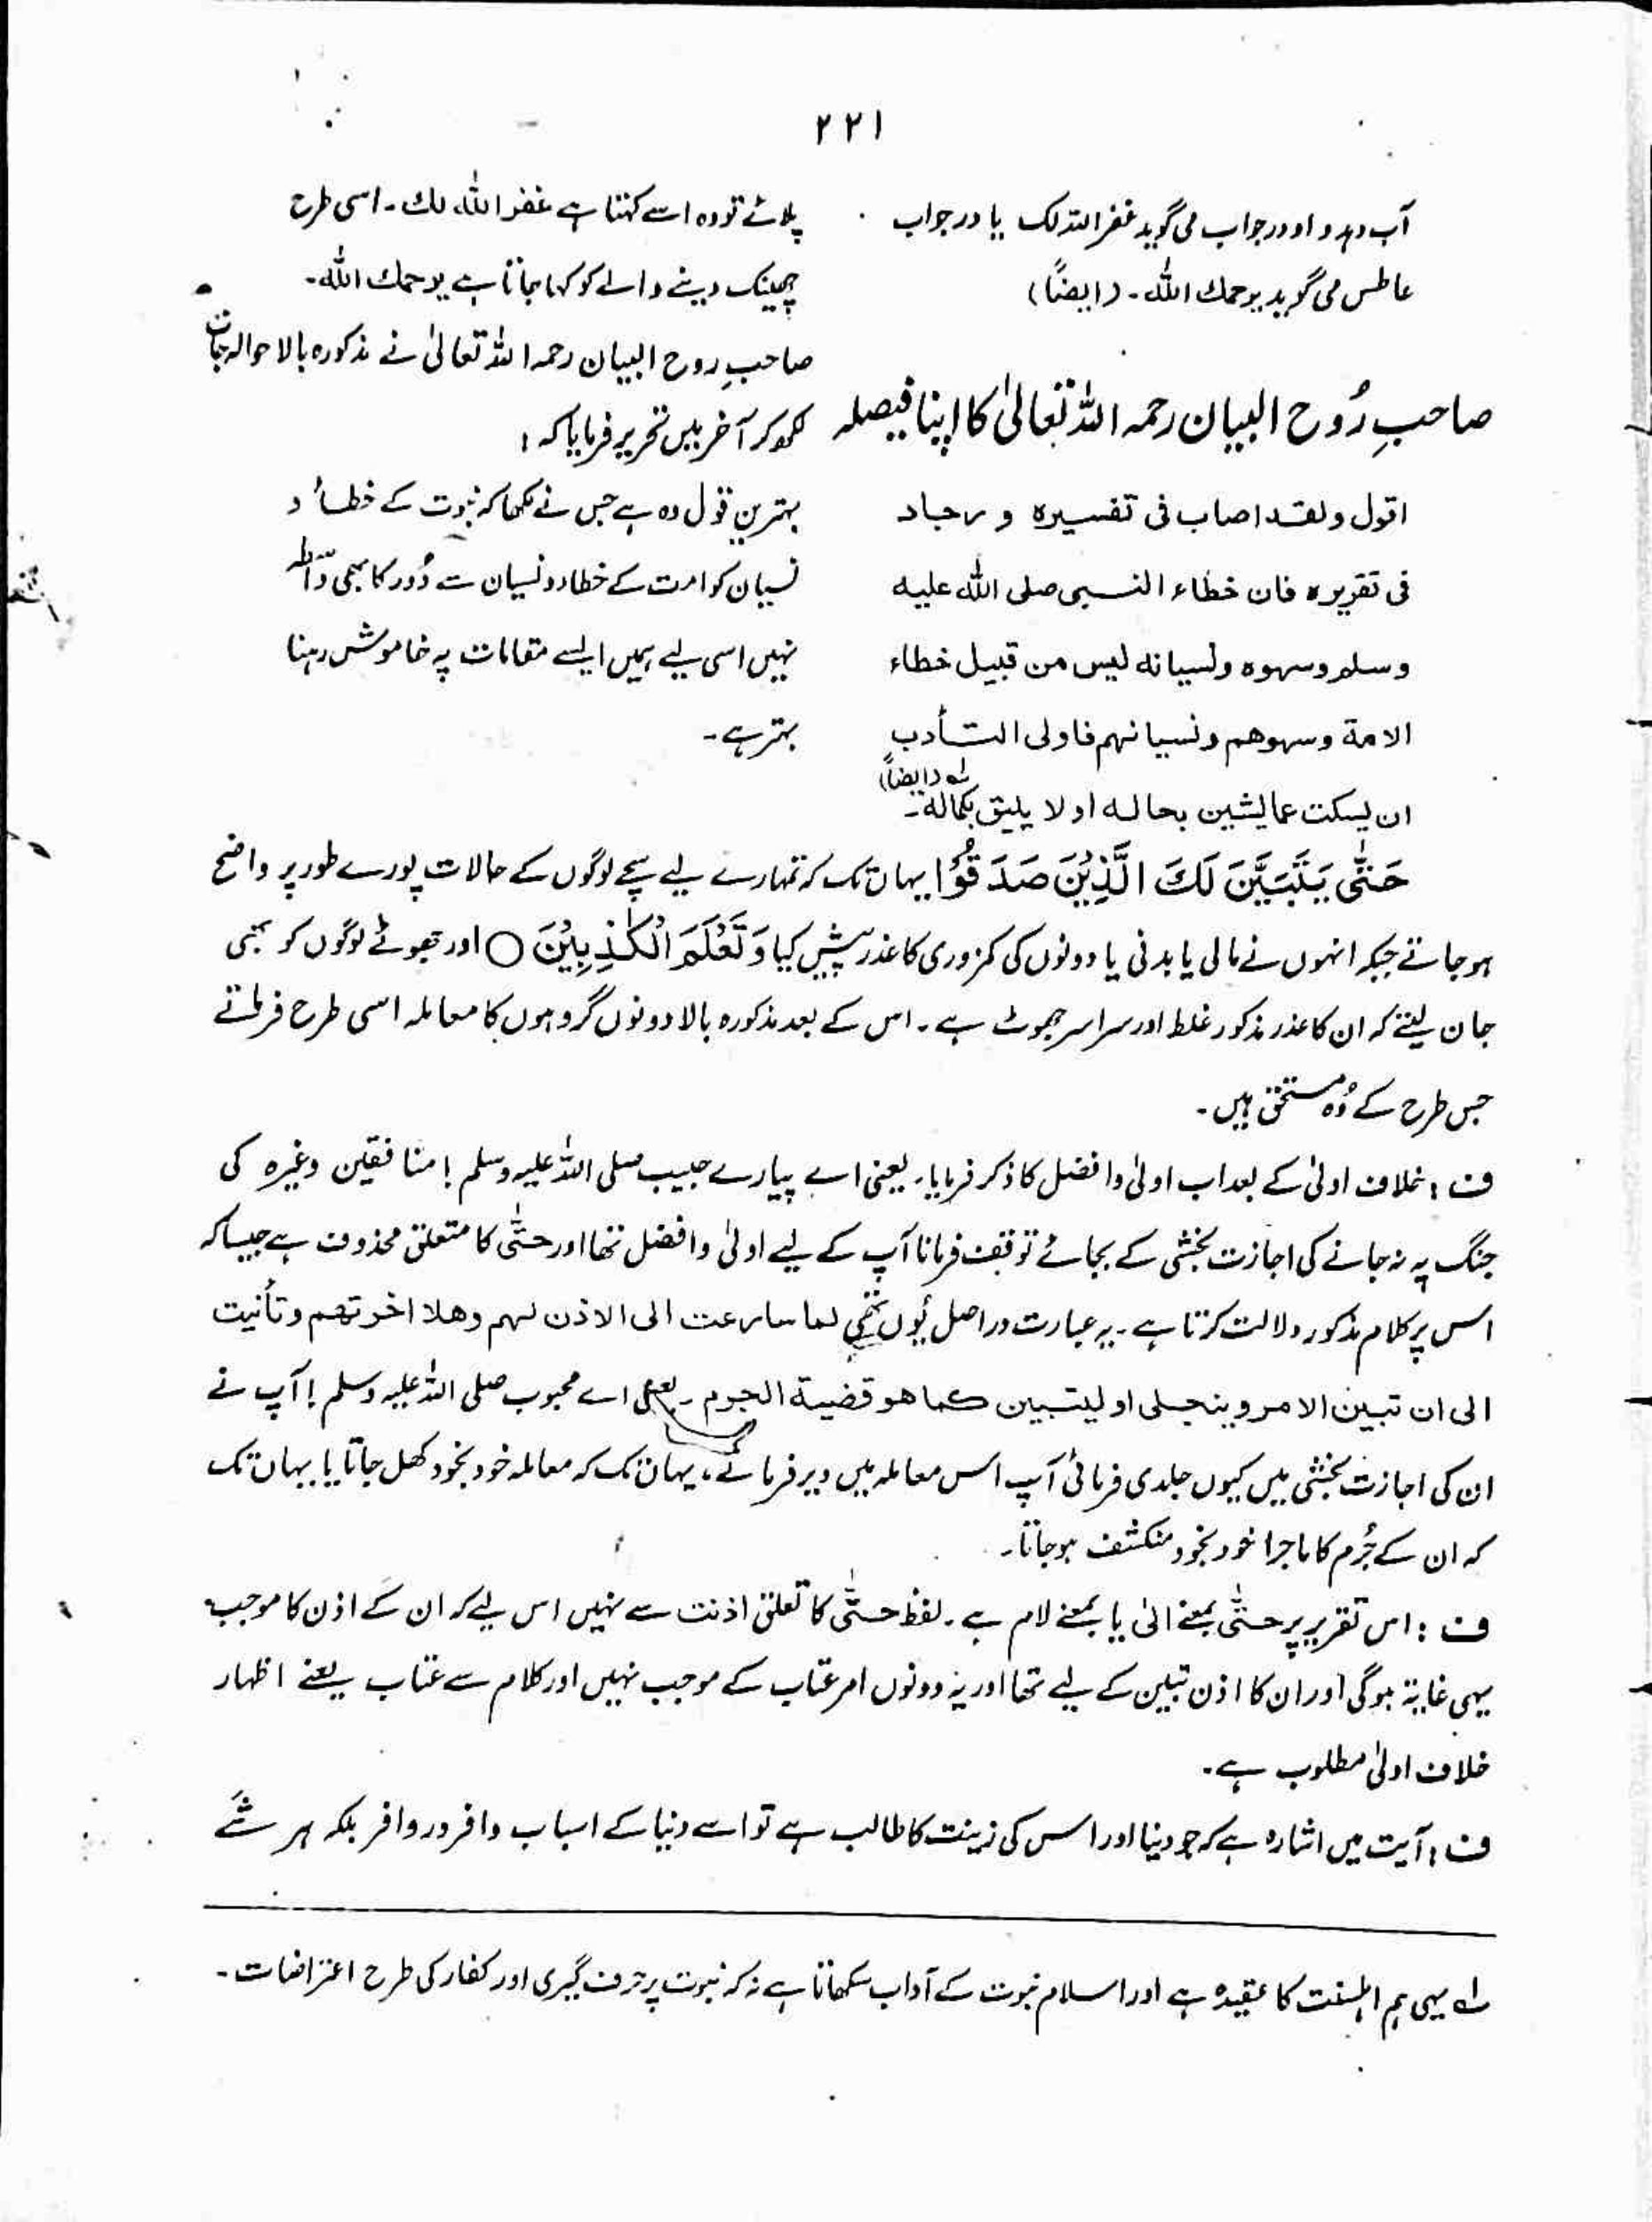 ۲۲۱
آب دہد و او در جواب می گوید غفر اللہ لک یا در جواب
عاطس می گوید یرحمك اللہ ۔ (ایضاً)
پلائے تو وہ اسے کہتا ہے غفر اللہ لك ۔ اسی طرح
چھینک دینے والے کو کہا جاتا ہے یرحمك اللہ ۔
صاحبِ رُوح البیان رحمہ اللہ تعالیٰ کا اپنا فیصلہ
صاحبِ روح البیان رحمہ اللہ تعالیٰ نے مذکورہ بالا حوالہ جات
لکھ کر آخر میں تحریر فرمایا کہ :
اقول ولقد اصاب فی تفسیرہ و رجاد
فی تقریرہ فان خطاء النبی صلی اللہ علیہ
وسلم وسہوہ ونسیانہ لیس من قبیل خطاء
الامۃ وسہوھم ونسیانہم فاولی التأدب
ان یسکت عما یشین بحالہ او لا یلیق بکمالہ ۔ لہ (ایضاً)
بہترین قول وہ ہے جس نے لکھا کہ نبوت کے خطاء و
نسیان کو امت کے خطاء و نسیان سے دُور کا بھی واسطہ
نہیں اسی لیے ہمیں ایسے مقامات پہ خاموش رہنا
بہتر ہے ۔
حَتّٰى يَتَبَيَّنَ لَكَ الَّذِيْنَ صَدَقُوْا یہاں تک کہ تمہارے لیے سچے لوگوں کے حالات پورے طور پر واضح
ہو جاتے جبکہ انہوں نے مالی یا بدنی یا دونوں کی کمزوری کا عذر پیش کیا وَتَعْلَمَ الْكٰذِبِيْنَ ○ اور جھوٹے لوگوں کو بھی
جان لیتے کہ ان کا عذر مذکور غلط اور سراسر جھوٹ ہے ۔ اس کے بعد مذکورہ بالا دونوں گروہوں کا معاملہ اسی طرح فرماتے
جس طرح کے وُہ مستحق ہیں ۔
ف : خلاف اولیٰ کے بعد اب اولیٰ و افضل کا ذکر فرمایا ۔ یعنی اے پیارے حبیب صلی اللہ علیہ وسلم ! منافقین وغیرہ کی
جنگ پہ نہ جانے کی اجازت بخشی کے بجائے توقف فرمانا آپ کے لیے اولیٰ و افضل تھا اور حتّٰی کا متعلق محذوف ہے جیسا کہ
اس پر کلام مذکور دلالت کرتا ہے ۔ یہ عبارت در اصل یُوں تھی لما سارعت الی الاذن لہم وھلا اخرتھم وتأنیت
الی ان تبین الامر وینجلی او لیتبین کما ھو قضیة الجرم ۔ یعنی اے محبوب صلی اللہ علیہ وسلم ! آپ نے
ان کی اجازت بخشی میں کیوں جلدی فرمائی آپ اس معاملہ میں دیر فرماتے ، یہاں تک کہ معاملہ خود بخود کھل جاتا یا یہاں تک
کہ ان کے جُرم کا ماجرا خود بخود منکشف ہو جاتا ۔
ف : اس تقریر پر حتّٰی بمعنے الیٰ یا بمعنے لام ہے ۔ لفظ حتّٰی کا تعلق اذنت سے نہیں اس لیے کہ ان کے اذن کا موجب
یہی غایۃ ہوگی اور ان کا اذن تبین کے لیے تھا اور یہ دونوں امر عتاب کے موجب نہیں اور کلام سے عتاب یعنے اظہار
خلاف اولیٰ مطلوب ہے ۔
ف : آیت میں اشارہ ہے کہ جو دنیا اور اس کی زینت کا طالب ہے تو اسے دنیا کے اسباب وافر در وافر بلکہ ہر شَے
لہ یہی ہم اہلسنت کا عقیدہ ہے اور اسلام نبوت کے آداب سکھاتا ہے نہ کہ نبوت پر حرف گیری اور کفار کی طرح اعتراضات ۔